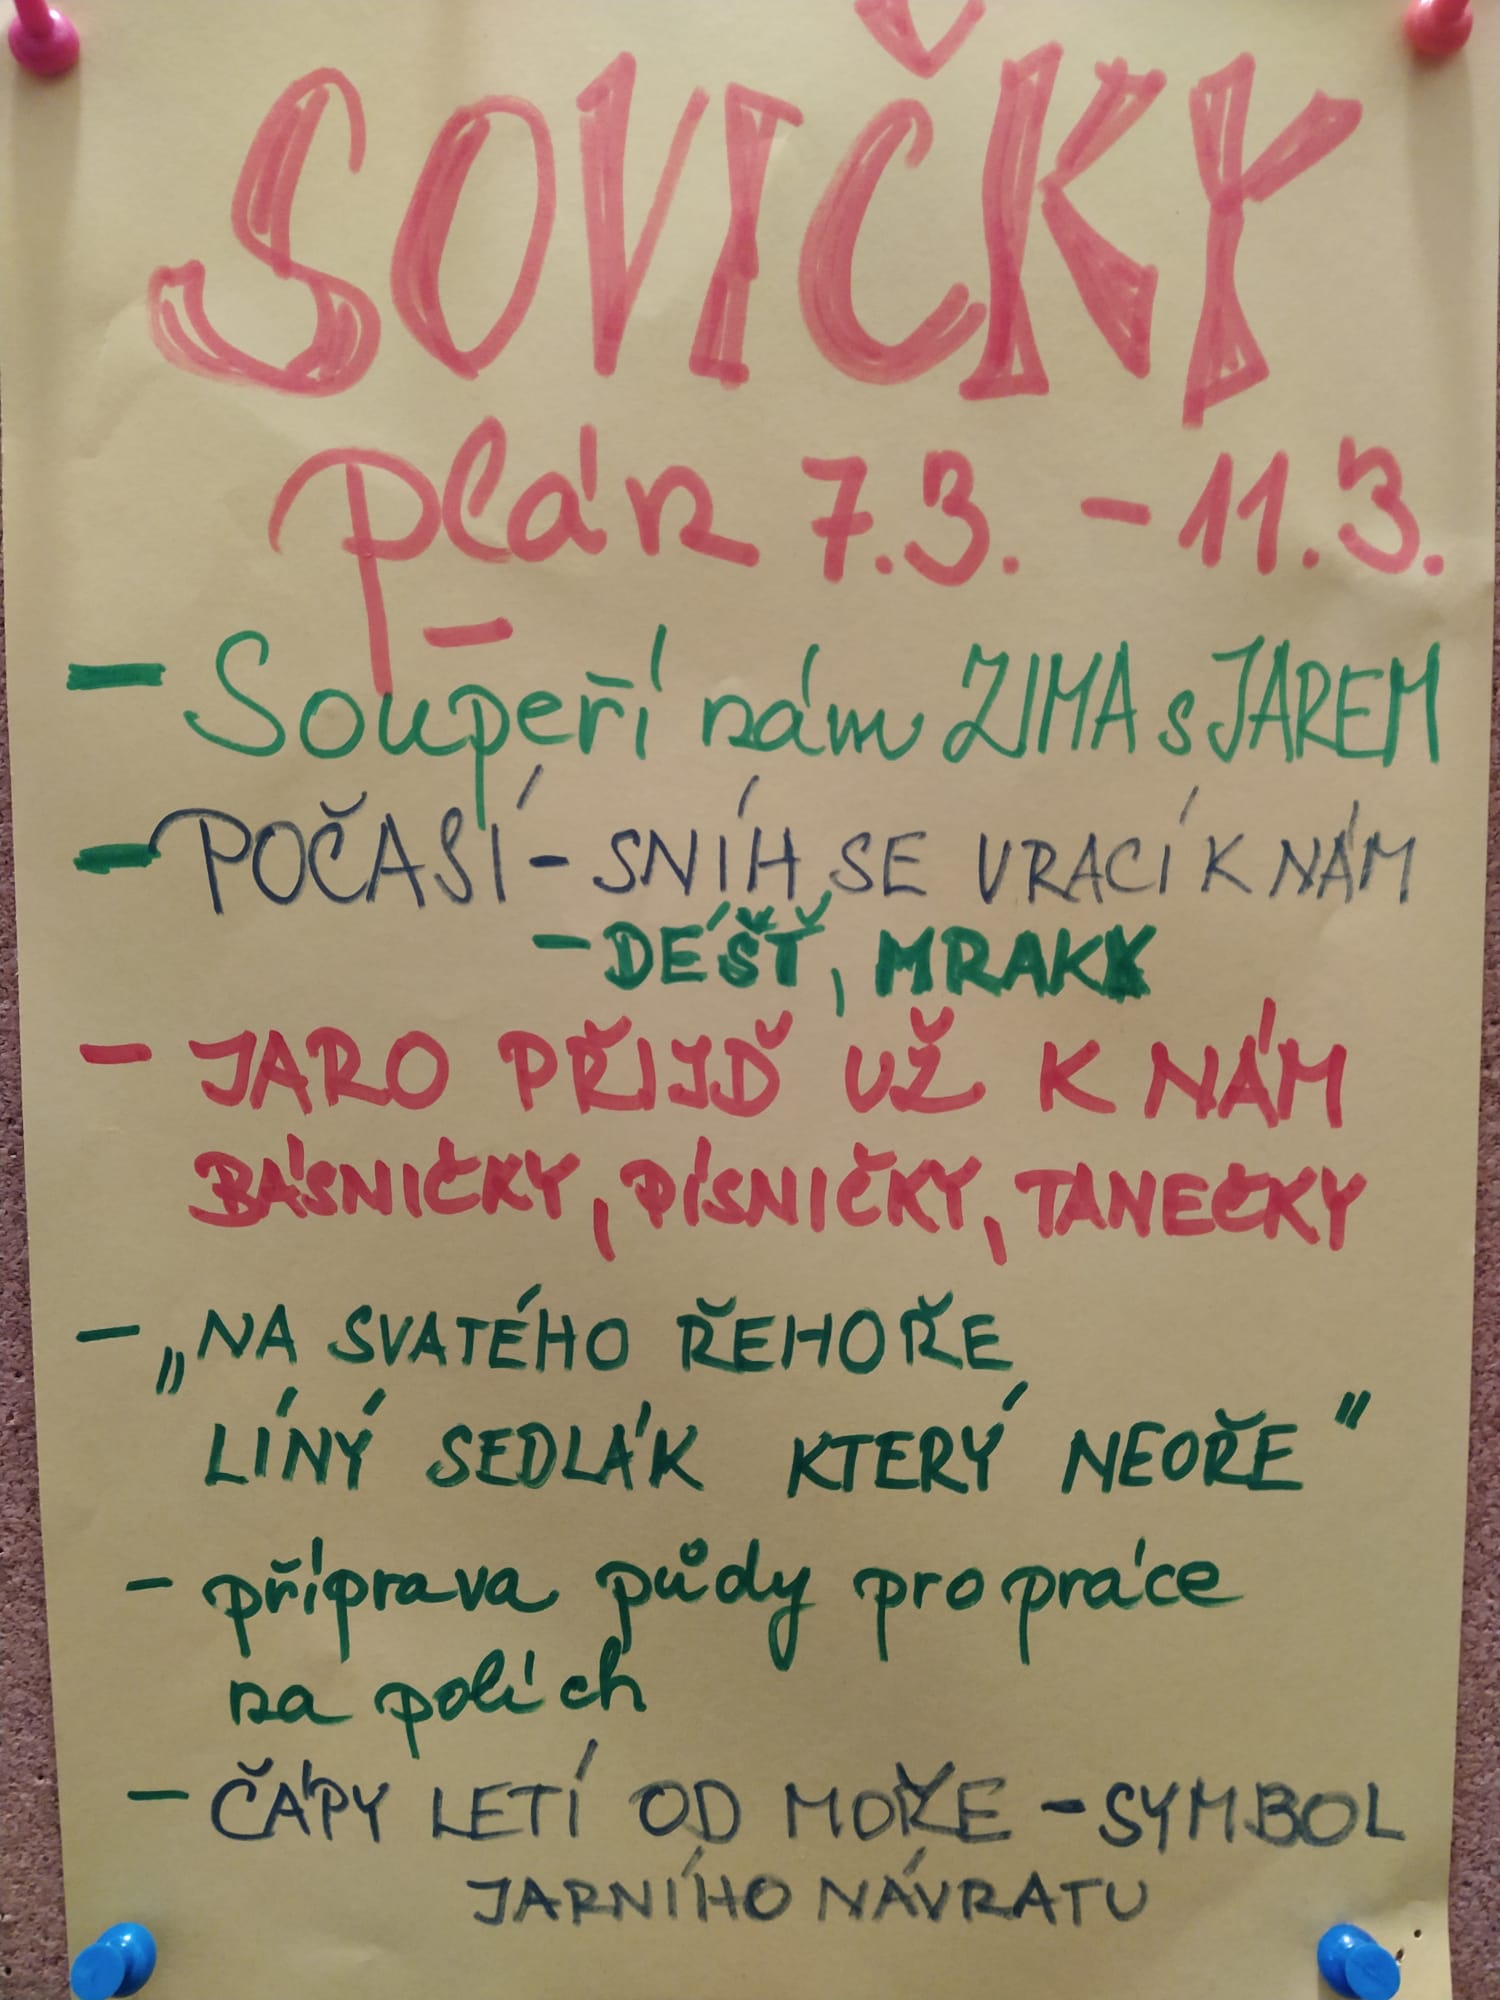 SOVIČKY
plán 7.3. - 11.3.
- Soupeří nám ZIMA s JAREM
- POČASÍ - SNÍH SE VRACÍ K NÁM
- DÉŠŤ, MRAKY
- JARO PŘIJĎ UŽ K NÁM
BÁSNIČKY, PÍSNIČKY, TANEČKY
- „NA SVATÉHO ŘEHOŘE
LÍNÝ SEDLÁK KTERÝ NEOŘE"
- příprava půdy pro práce
na polích
- ČÁPY LETÍ OD MOŘE - SYMBOL
JARNÍHO NÁVRATU